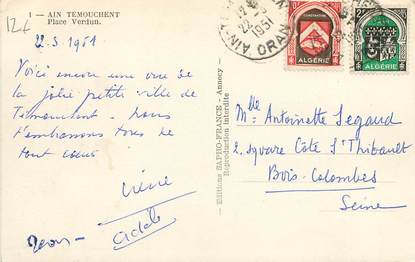 124
1 - AIN TEMOUCHENT
Place Verdun.
22.5.1951
Voici encore une vue de
la jolie petite ville de
Témouchent - nous
t'embrassons tous de
tout cœur
Jean - Adèle
Editions SAPHO-FRANCE - Annecy -
Reproduction interdite
22-5
1951
ORAN
CONSTANTINE
ALGÉRIE
ALGÉRIE
Mlle Antoinette Legaud
2. square Côte St Thibault
Bois-Colombes
Seine